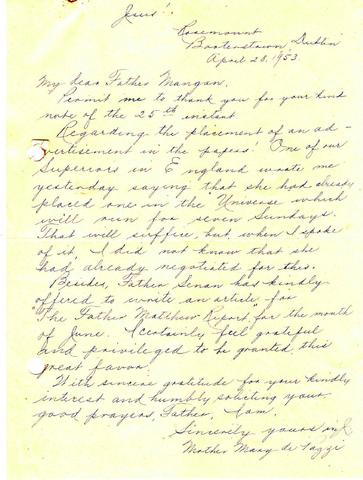 Jesus!
Rosemount
Booterstown, Dublin
April 28, 1953
My dear Father Mangan,
Permit me to thank you for your kind
note of the 25th instant.
Regarding the placement of an ad-
vertisement in the papers! One of our
Superiors in England wrote me
yesterday saying that she had already
placed one in the Universe which
will run for seven Sundays.
That will suffice, but, when I spoke
of it, I did not know that she
had already negotiated for this.
Besides, Father Senan has kindly
offered to write an article for
The Father Matthew Report for the month
of June. I certainly feel grateful
and privileged to be granted this
great favor.
With sincere gratitude for your kindly
interest and humbly soliciting your
good prayers, Father, I am.
Sincerely yours in
Mother Mary de Pazzi